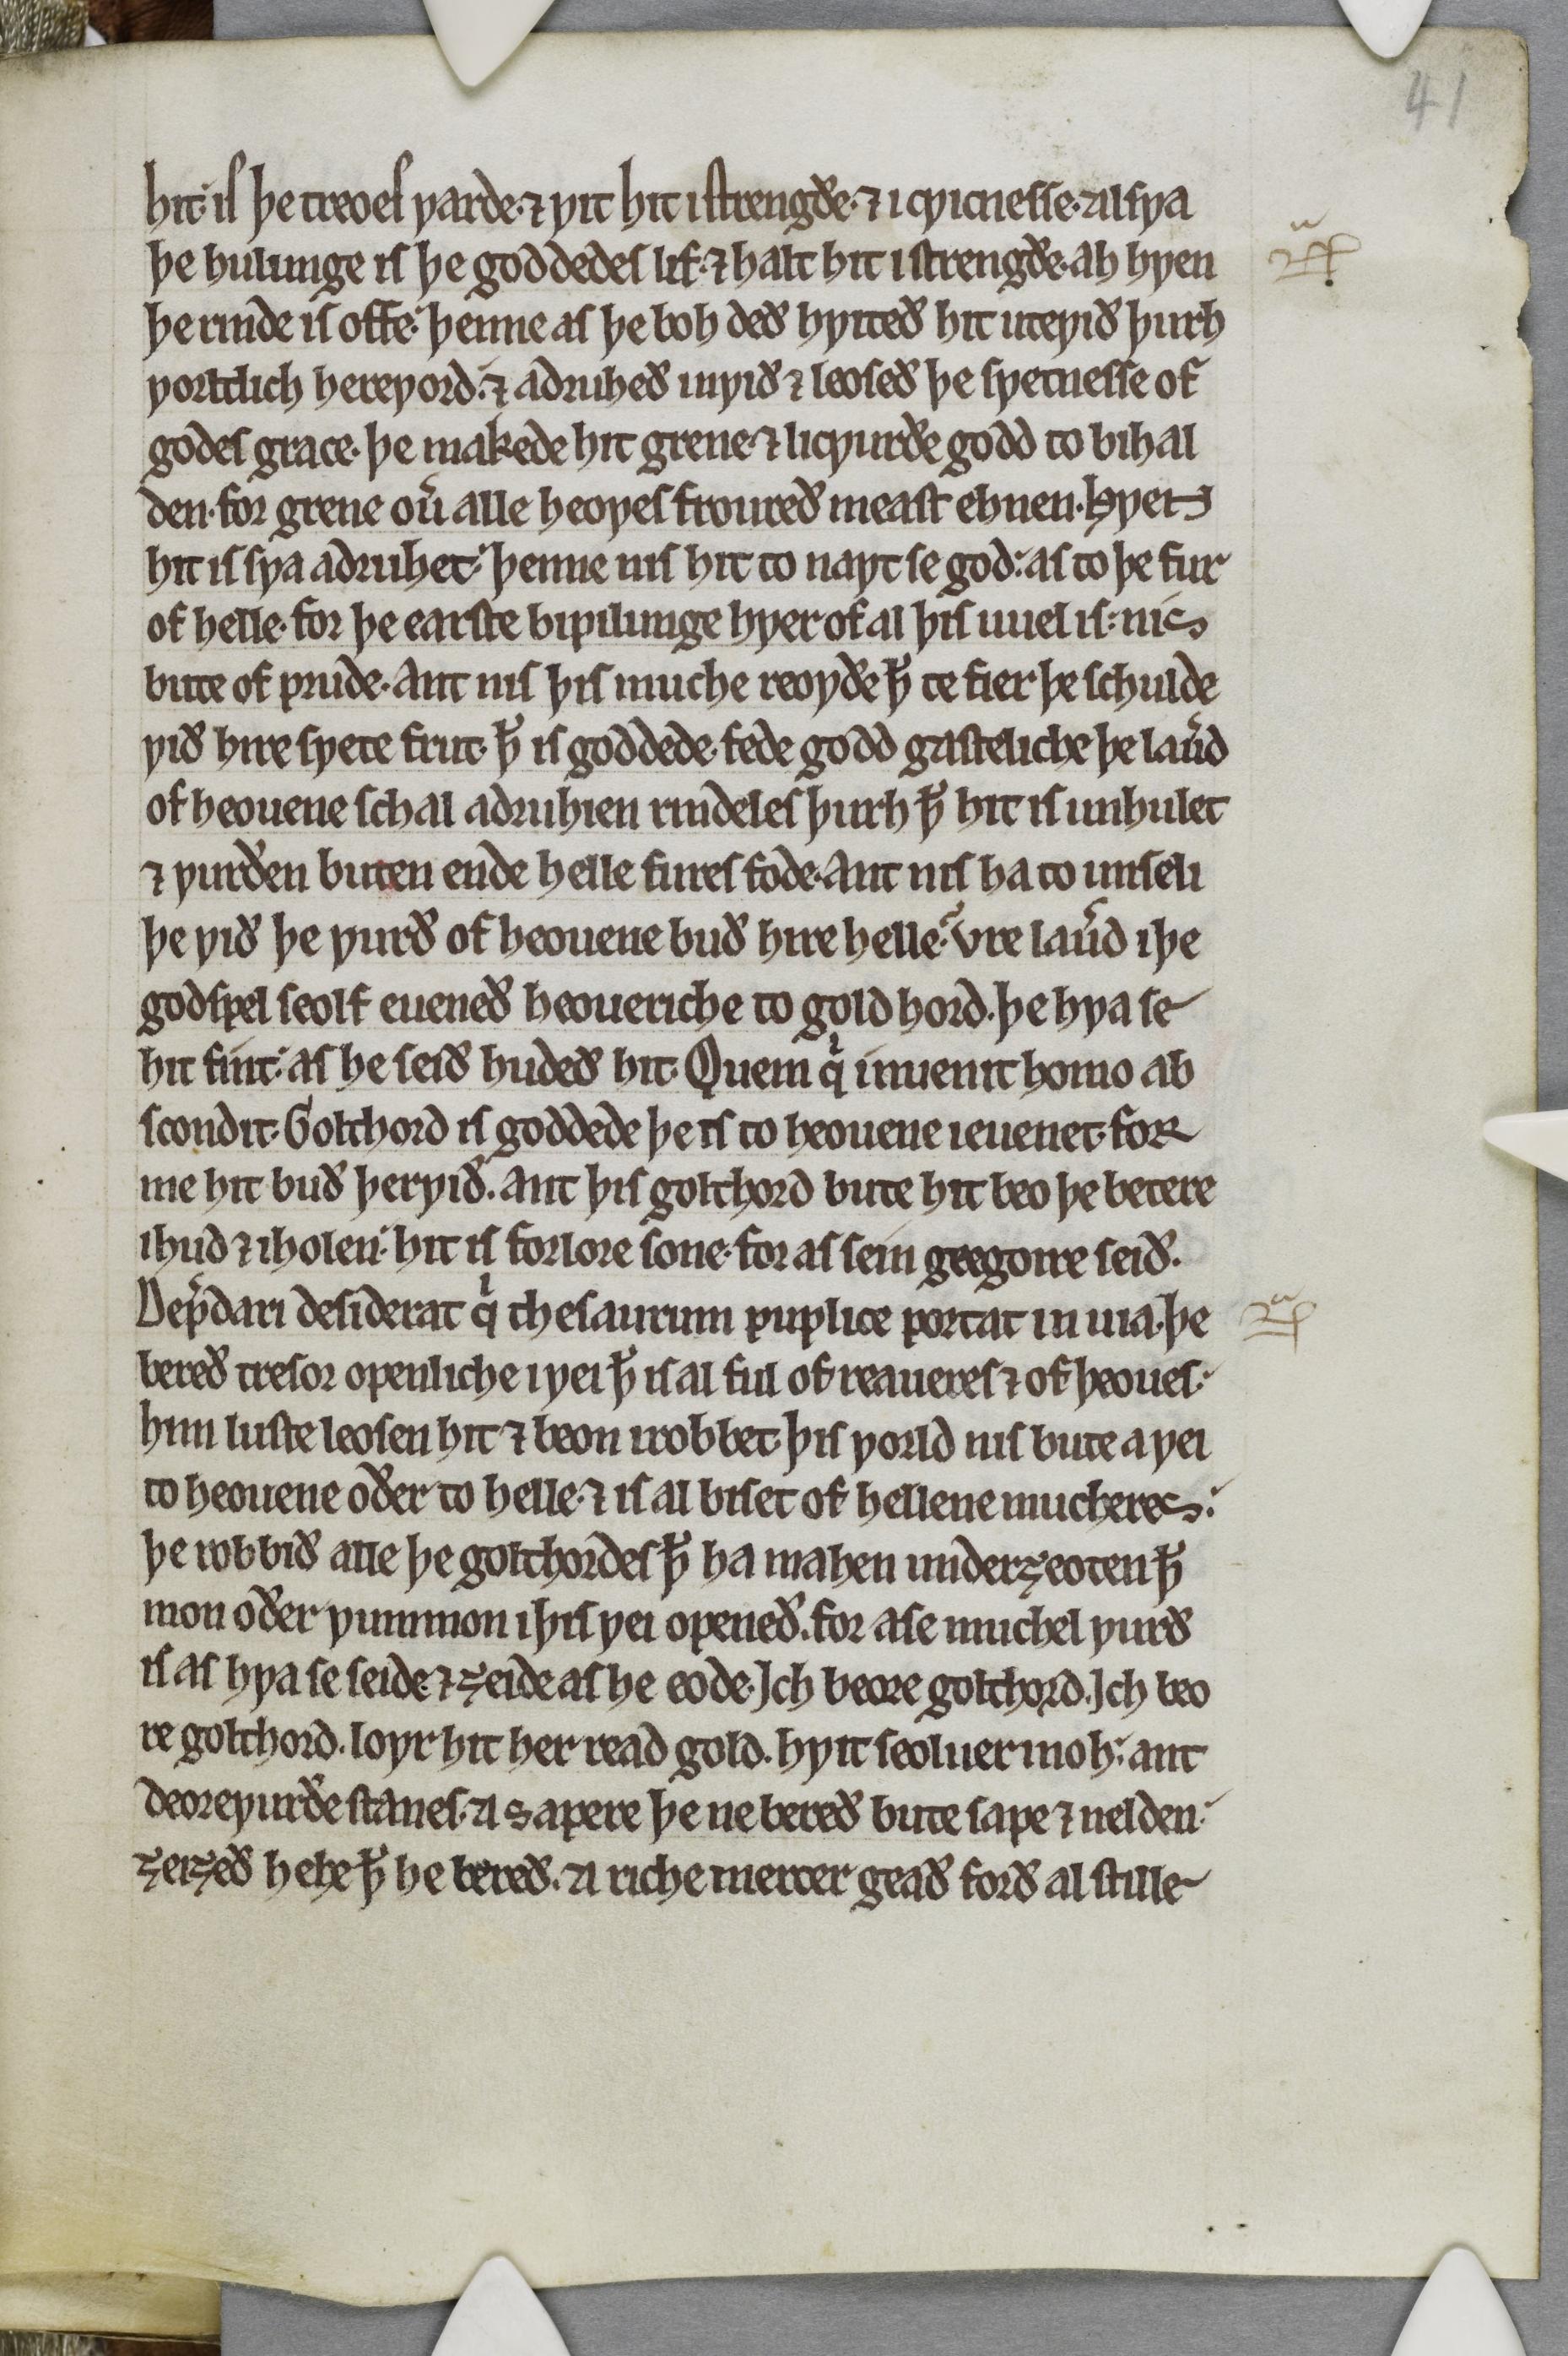 41
hit is þe treoes ƿarde ⁊ ƿit hit i strengðe ⁊ i cƿicnesse. Alsƿa
þe hulunge is þe goddedes lif. ⁊ halt hit i strengðe. ah hƿen
þe rinde is offe. þenne as þe boh deð hƿiteð hit uteƿið þurh
ƿorltlich hereƿord. ⁊ adruheð inƿið ⁊ leoseð þe sƿetnesse of
godes grace. þe makede hit grene ⁊ licƿurðe godd to bihal
den. for grene ou͛ alle heoƿes froureð meast ehnen. Hƿen
hit is sƿa adruhet. þenne nis hit to naƿt se god. as to þe fur
of helle. for þe earste bipilunge hƿer of al þis uuel is. nis
bute of prude. Ant nis þis muche reoƿðe ꝥ te fier þe schulde
ƿið hire sƿete frut. ꝥ is goddede. fede godd gasteliche þe lau͛d
of heouene schal adruhien rindeles þurh ꝥ hit is unhulet
⁊ ƿurðen buten ende helle fures fode. Ant nis ha to unseli
þe ƿið þe ƿurð of heouene buð hire helle. Vre lau͛d i þe
godspel seolf eueneð heoueriche to gold hord. þe hƿa se
hit fint. as he seið hudeð hit. Quem qͥ inuenit homo ab
scondit. Golthord is goddede þe is to heouene ieuenet. for
me hit buð þerƿið. Ant þis golthord bute hit beo þe betere
ihud ⁊ iholen. hit is forlore sone. for as sein gregoire seið.
Dep͛dari desiderat qͥ thesaurum puplice portat in uia. þe
bereð tresor openliche i ƿei ꝥ is al ful of reaueres ⁊ of þeoues.
him luste leosen hit ⁊ beon irobbet. þis ƿorld nis bute a ƿei
to heouene oðer to helle. ⁊ is al biset of hellene mucheres.
þe robbið alle þe golthordes ꝥ ha mahen underȝeoten ꝥ
mon oðer ƿummon i þis ƿei openeð. for ase muchel ƿurð
is as hƿa se seide ⁊ ȝeide as he eode. Ich beore golthord. Ich beo
re golthord. loƿr hit her read gold. hƿit seoluer inoh. ant
deoreƿurðe stanes. A sapere þe ne bereð bute sape ⁊ nelden.
ȝeiȝeð hehe ꝥ he bereð. A riche mercer geað forð al stille